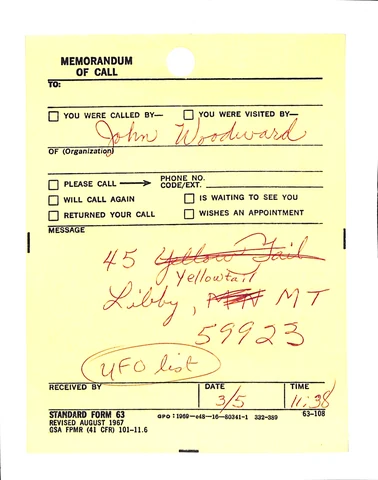 MEMORANDUM
OF CALL
TO:
YOU WERE CALLED BY— YOU WERE VISITED BY—
John Woodward
OF (Organization)
PLEASE CALL → PHONE NO. CODE/EXT.
WILL CALL AGAIN IS WAITING TO SEE YOU
RETURNED YOUR CALL WISHES AN APPOINTMENT
MESSAGE
45 Yellow Tail
Yellowtail
Libby, MT
59923
UFO list
RECEIVED BY DATE TIME
3/5 11:38
STANDARD FORM 63 GPO : 1969—c48—16—80341-1 332-389 63-108
REVISED AUGUST 1967
GSA FPMR (41 CFR) 101-11.6